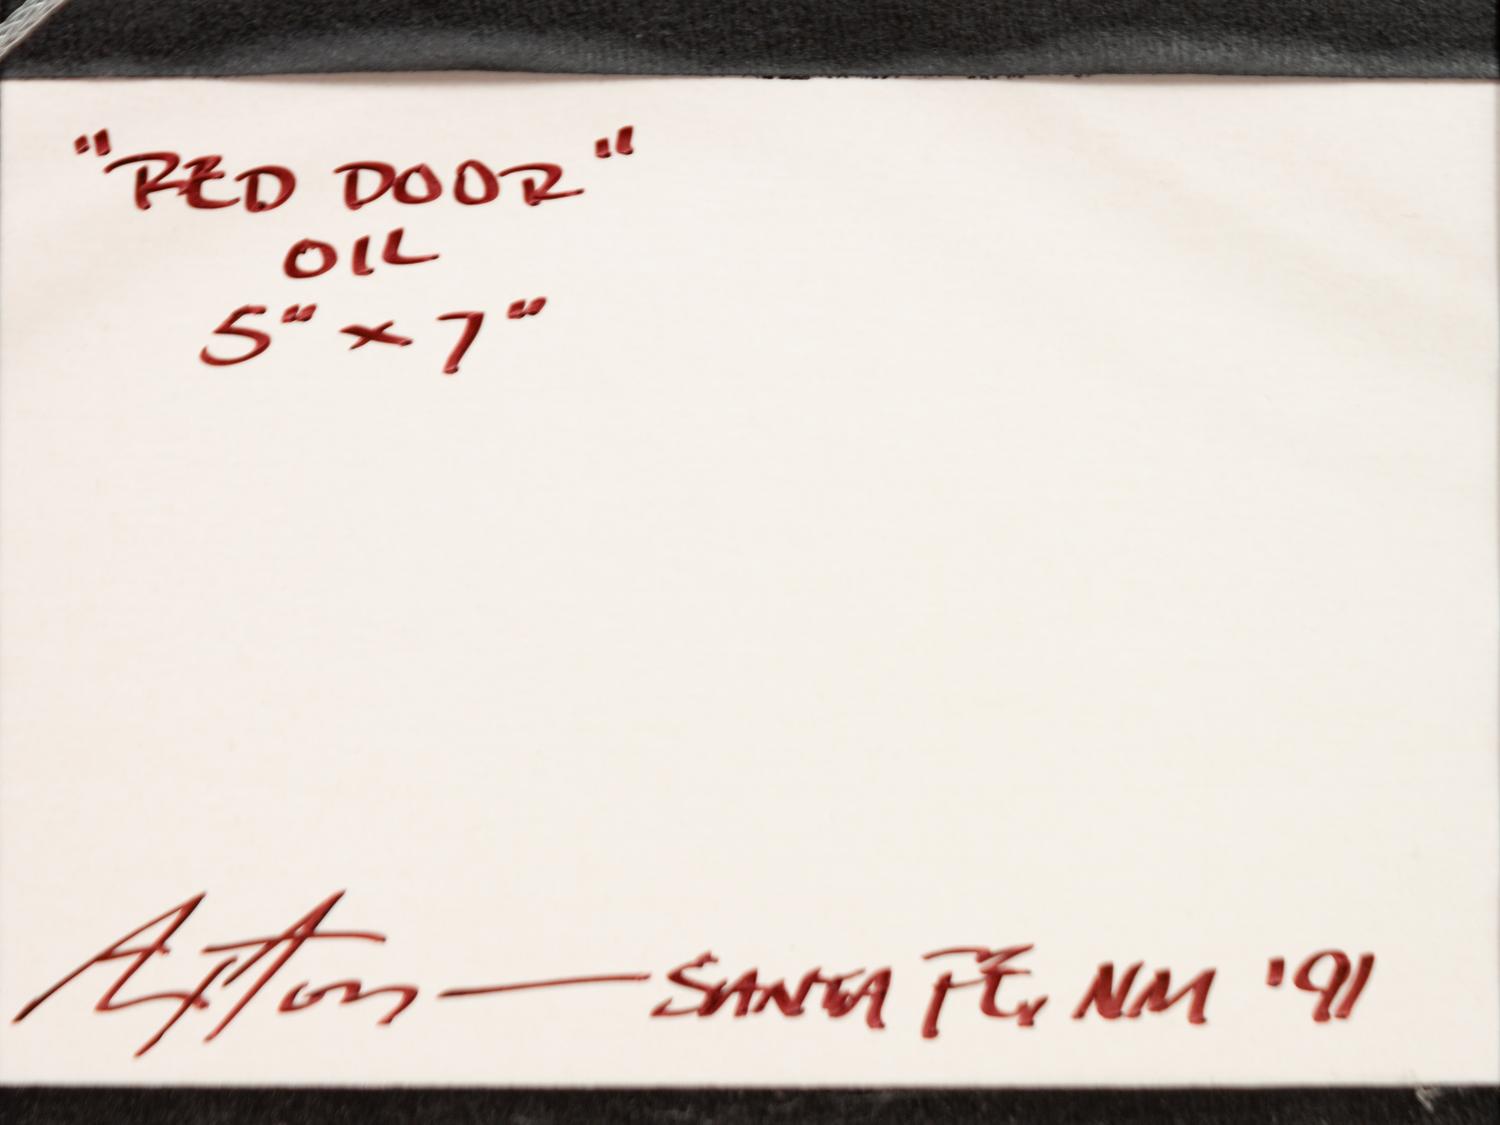 "RED DOOR"
OIL
5" x 7"
— SANTA FE, NM '91